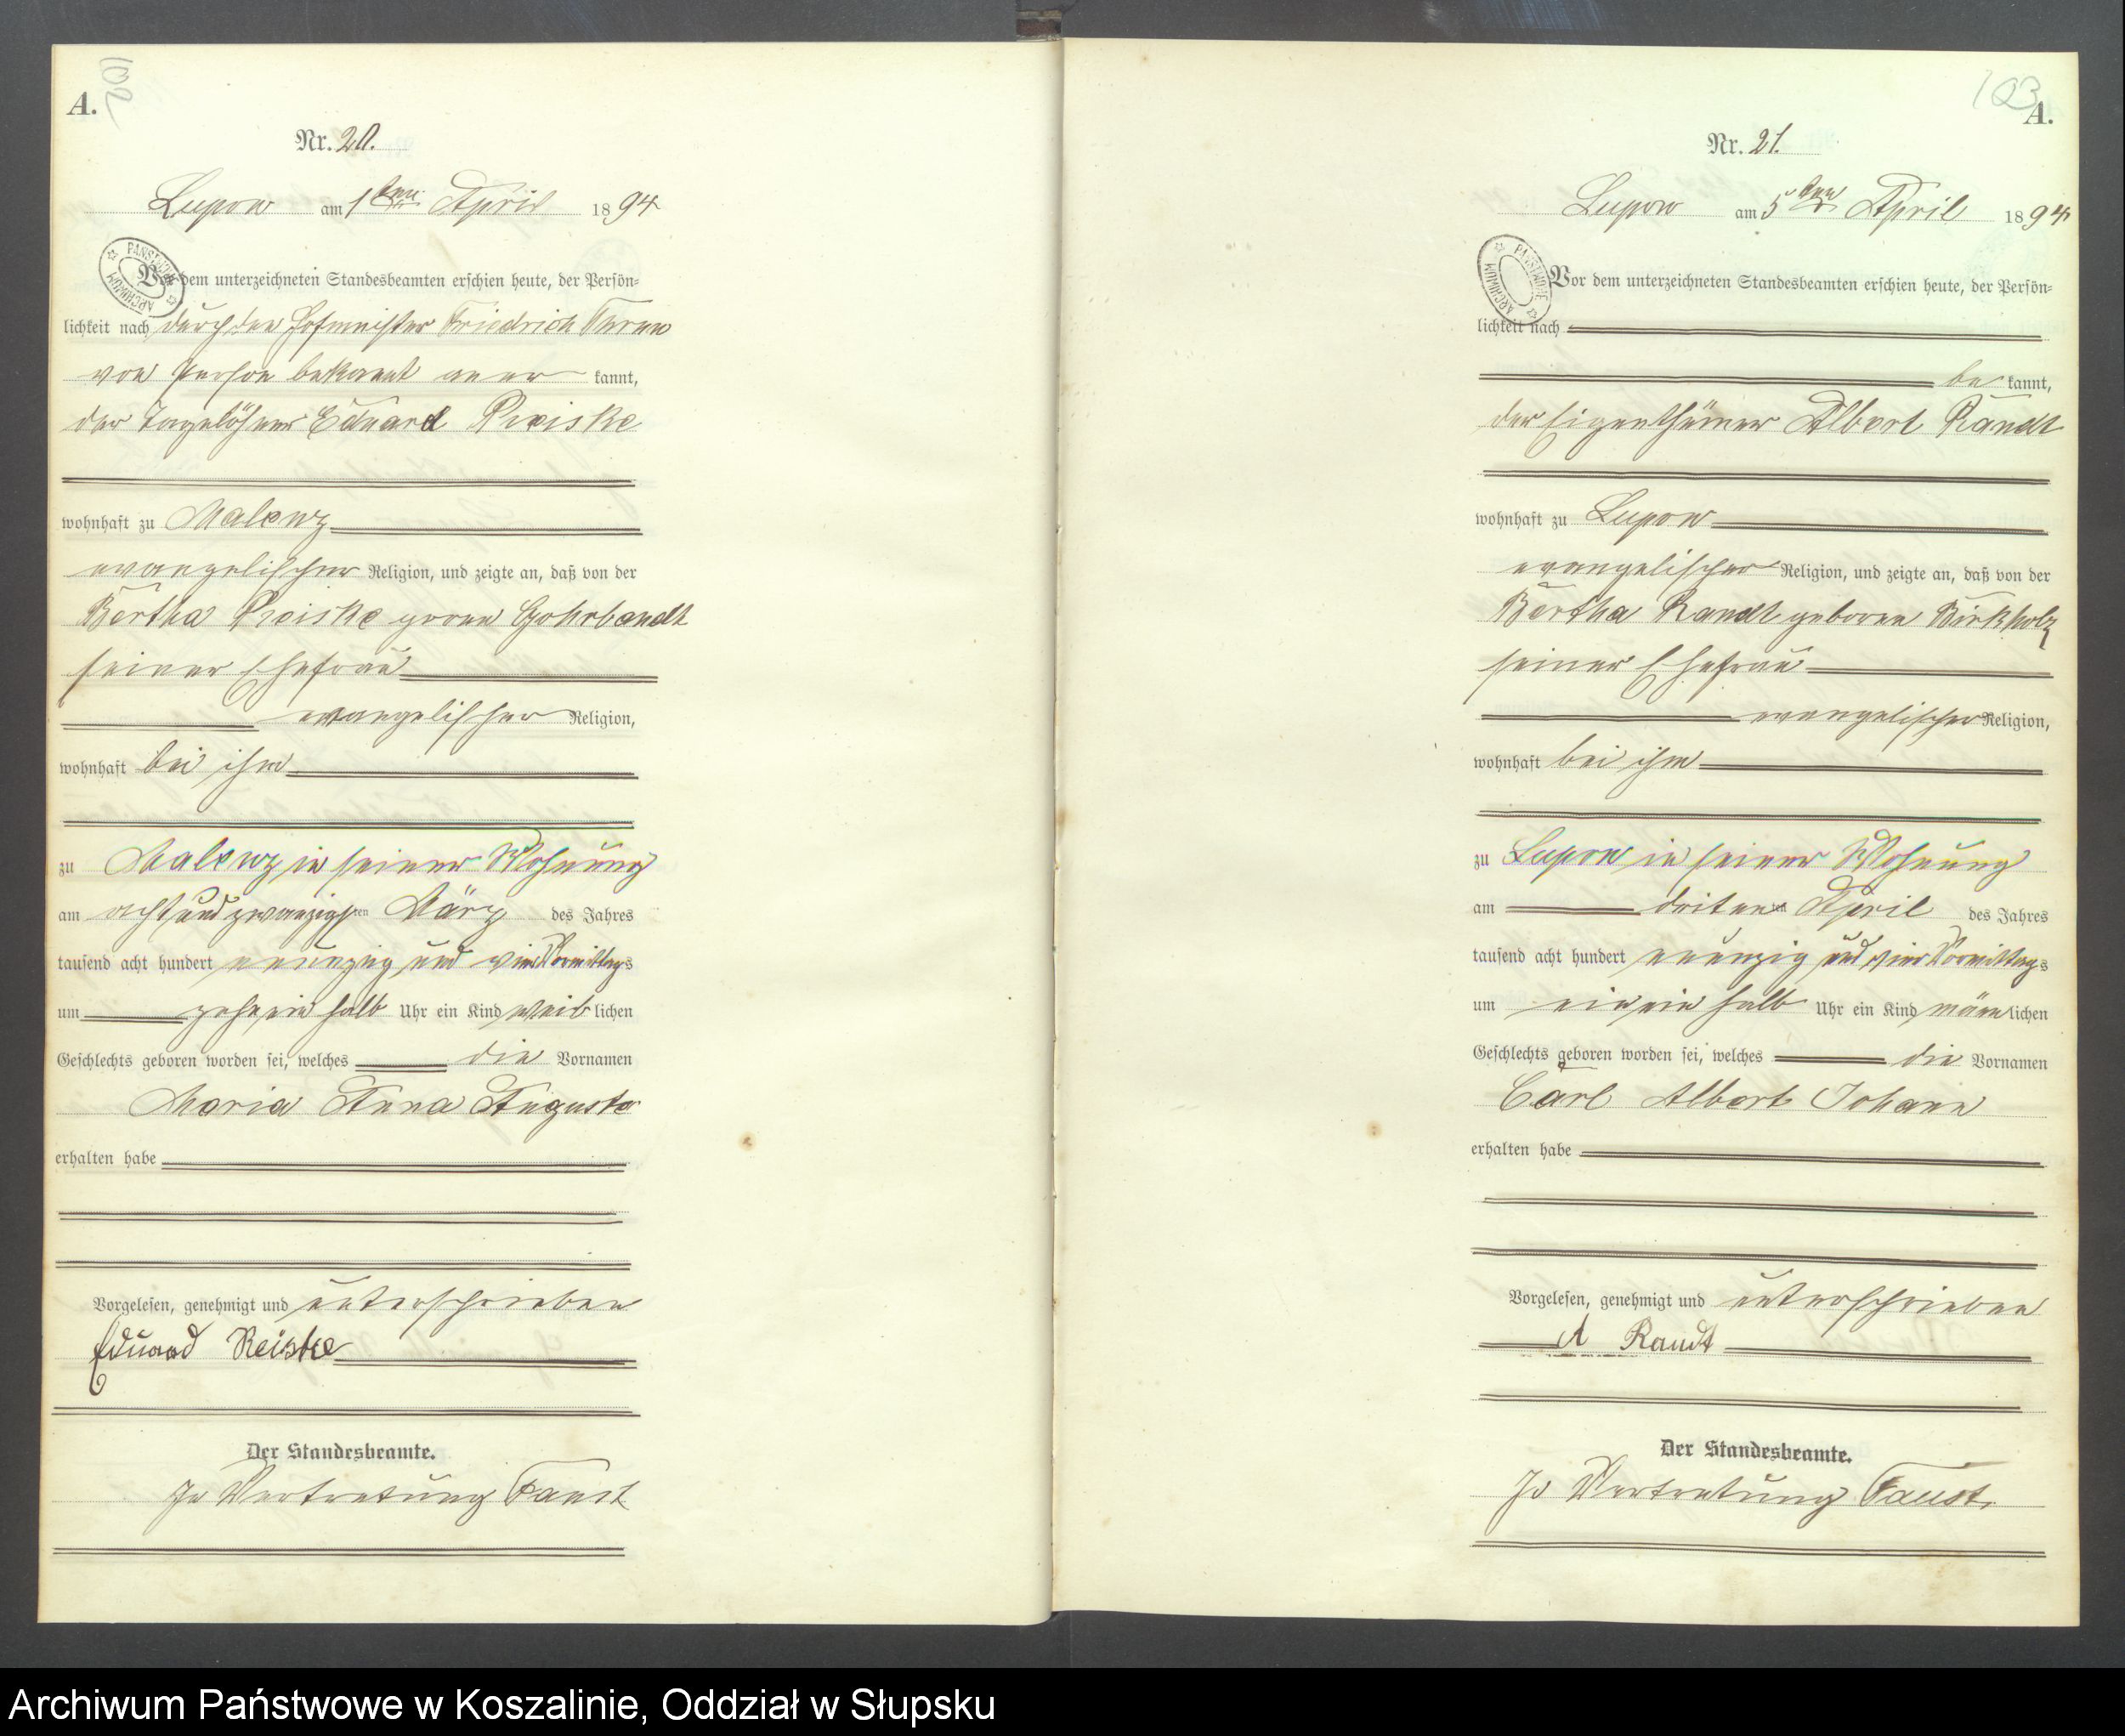 102
A.
Nr. 20.
Lupow am 1ten April 1894
Vor dem unterzeichneten Standesbeamten erschien heute, der Persön-
lichkeit nach durch den Hofmeister Friedrich
von Person bekannt aner kannt,
der Tagelöhner Eduard Reiske
wohnhaft zu Malenz
evangelischer Religion, und zeigte an, daß von der
Bertha Reiske geboren Gohrbandt
seiner Ehefrau
evangelischer Religion,
wohnhaft bei ihm
zu Malenz in seiner Wohnung
am acht und zwanzigsten März des Jahres
tausend acht hundert neunzig und vier Vormittags
um zehn ein halb Uhr ein Kind weib lichen
Geschlechts geboren worden sei, welches die Vornamen
Maria Anna Auguste
erhalten habe
Vorgelesen, genehmigt und unterschrieben
Eduard Reiske
Der Standesbeamte.
In Vertretung Faust
103
A.
Nr. 21.
Lupow am 5ten April 1894
Vor dem unterzeichneten Standesbeamten erschien heute, der Persön-
lichkeit nach
be kannt,
der Eigenthümer Albert Randt
wohnhaft zu Lupow
evangelischer Religion, und zeigte an, daß von der
Bertha Randt geboren Birkholz
seiner Ehefrau
evangelischer Religion,
wohnhaft bei ihm
zu Lupow in seiner Wohnung
am dritten April des Jahres
tausend acht hundert neunzig und vier Vormittags
um ein ein halb Uhr ein Kind männ lichen
Geschlechts geboren worden sei, welches die Vornamen
Carl Albert Johann
erhalten habe
Vorgelesen, genehmigt und unterschrieben
A Randt
Der Standesbeamte.
In Vertretung Faust.
ARCHIWUM PAŃSTWOWE
ARCHIWUM PAŃSTWOWE
Archiwum Państwowe w Koszalinie, Oddział w Słupsku